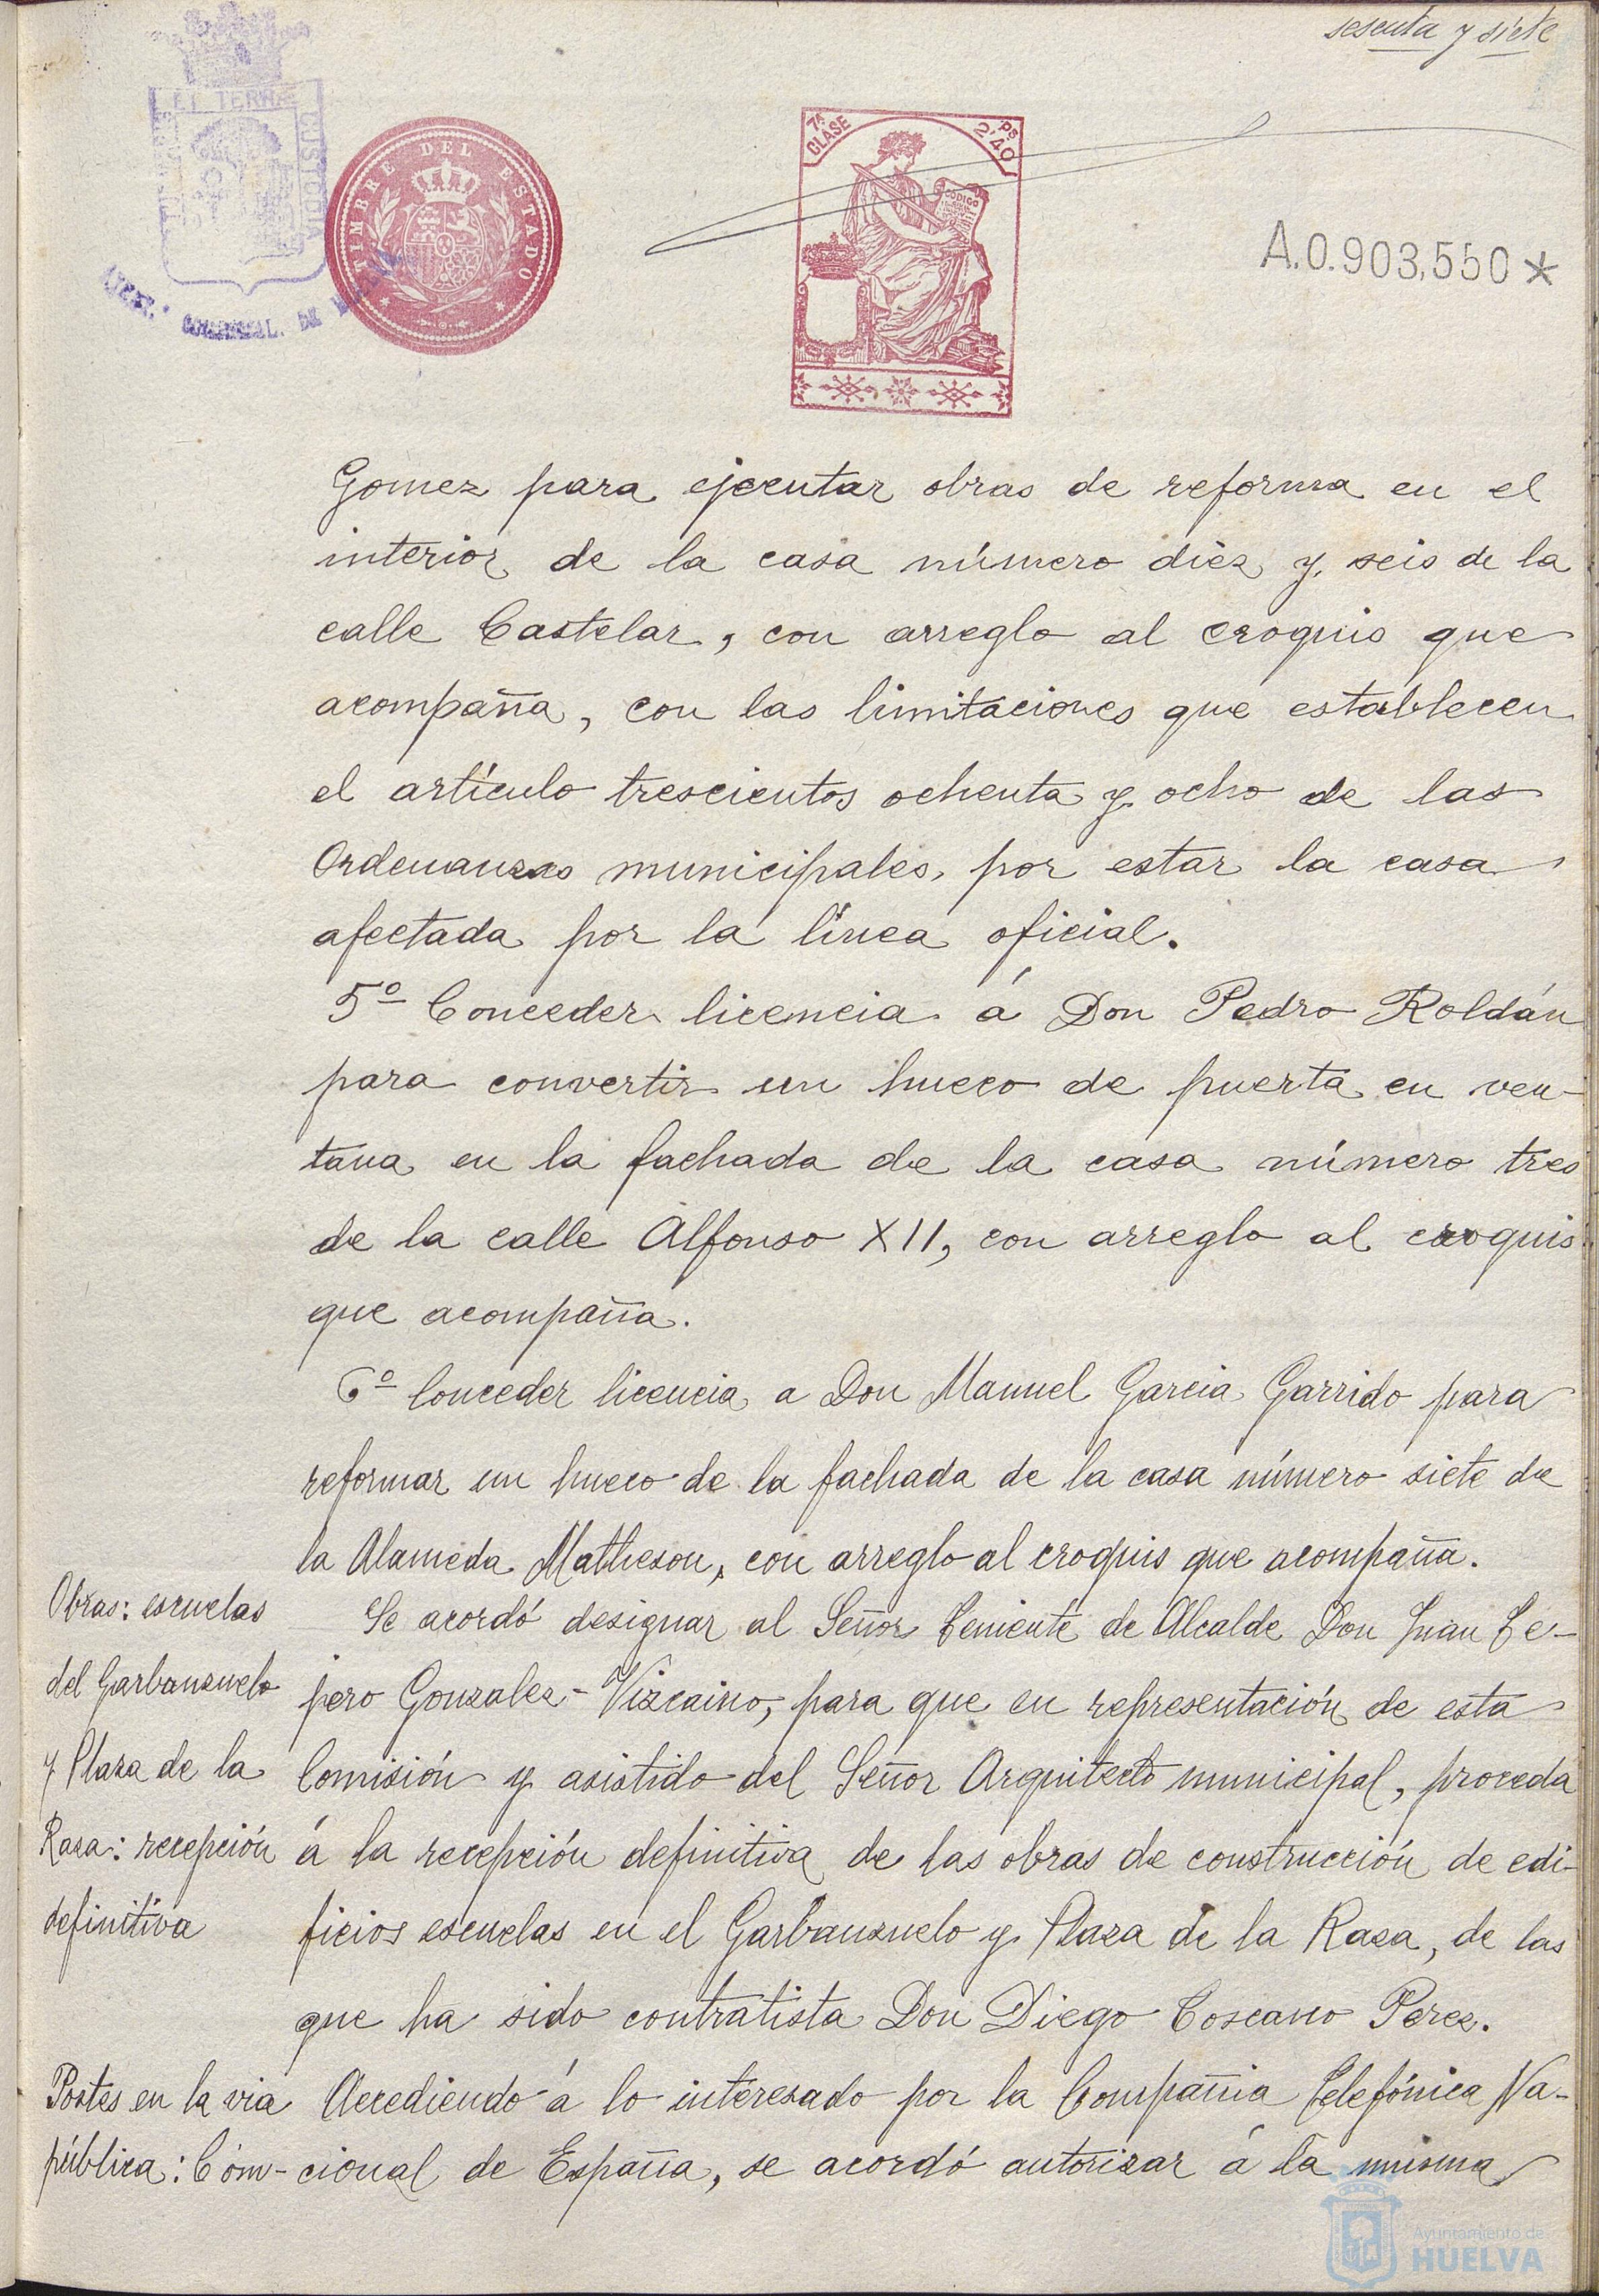 sesenta y siete
TIMBRE DEL ESTADO
7ª CLASE
2'40 PS
CODIGO
A.0.903,550*
Gomez para ejecutar obras de reforma en el
interior de la casa número diez y seis de la
calle Castelar, con arreglo al croquis que
acompaña, con las limitaciones que establecen
el artículo trescientos ochenta y ocho de las
Ordenanzas municipales, por estar la casa
afectada por la línea oficial.
5º Conceder licencia á Don Pedro Roldán
para convertir un hueco de puerta en ven-
tana en la fachada de la casa número tres
de la calle Alfonso XII, con arreglo al croquis
que acompaña.
6º Conceder licencia a Don Manuel Garcia Garrido para
reformar un hueco de la fachada de la casa número siete de
la Alameda Matheson, con arreglo al croquis que acompaña.
Obras: escuelas
del Garbanzuelo
y Plaza de la
Raza: recepción
definitiva
Se acordó designar al Señor Teniente de Alcalde Don Juan Te-
jero Gonzalez-Vizcaino, para que en representación de esta
Comisión y asistido del Señor Arquitecto municipal, proceda
á la recepción definitiva de las obras de construcción de edi-
ficios escuelas en el Garbanzuelo y Plaza de la Raza, de las
que ha sido contratista Don Diego Toscano Perez.
Postes en la via
pública: Com-
Accediendo á lo interesado por la Compañia Telefónica Na-
cional de España, se acordó autorizar á la misma
Ayuntamiento de
HUELVA